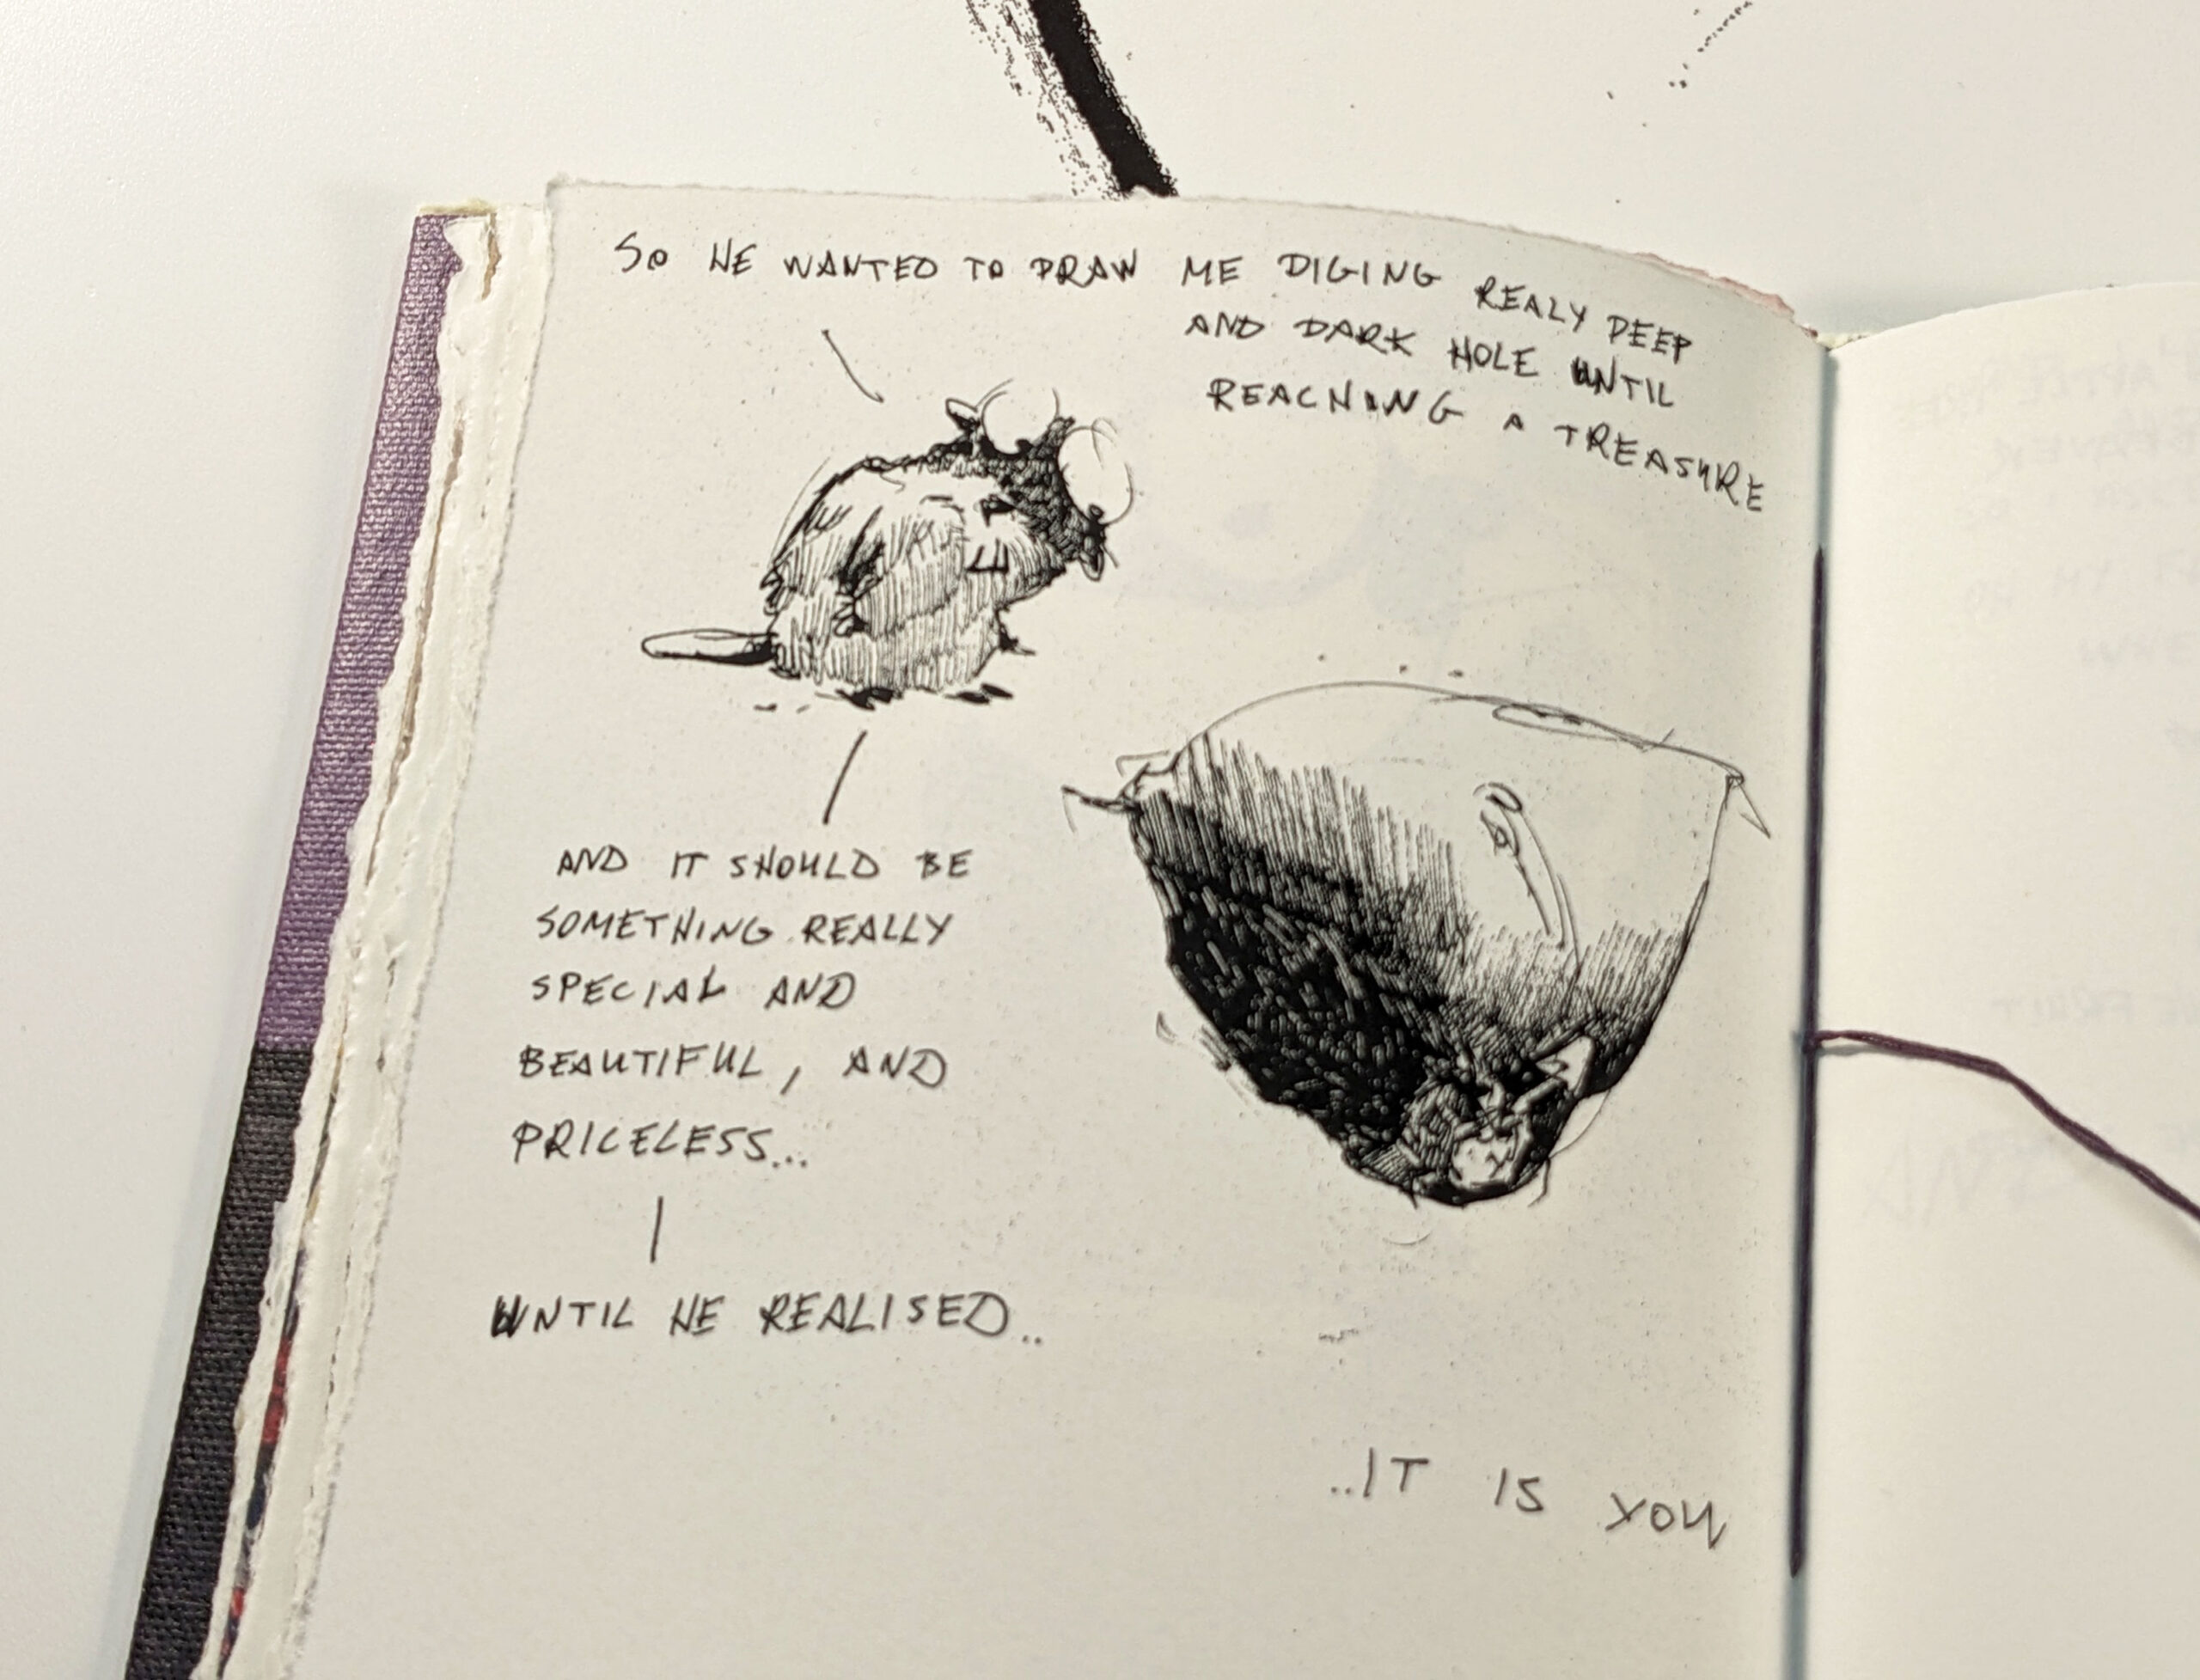 SO HE WANTED TO DRAW ME DIGING REALY DEEP
AND DARK HOLE UNTIL
REACHING A TREASURE
AND IT SHOULD BE
SOMETHING REALLY
SPECIAL AND
BEAUTIFUL, AND
PRICELESS...
UNTIL HE REALISED..
..IT IS YOU